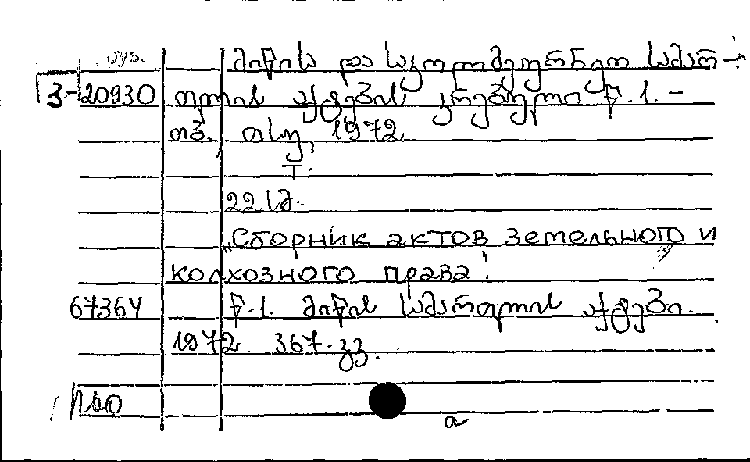 მიწის და საკოლმეურნეო სამარ-
3-20930 თლის აქტების კრებული წ. 1. -
თბ. თსუ, 1972.
T.
22 სმ.
„Сборник актов земельного и
колхозного права"
67364 წ-1. მიწის სამართლის აქტები.
1972 367-გვ.
140
a